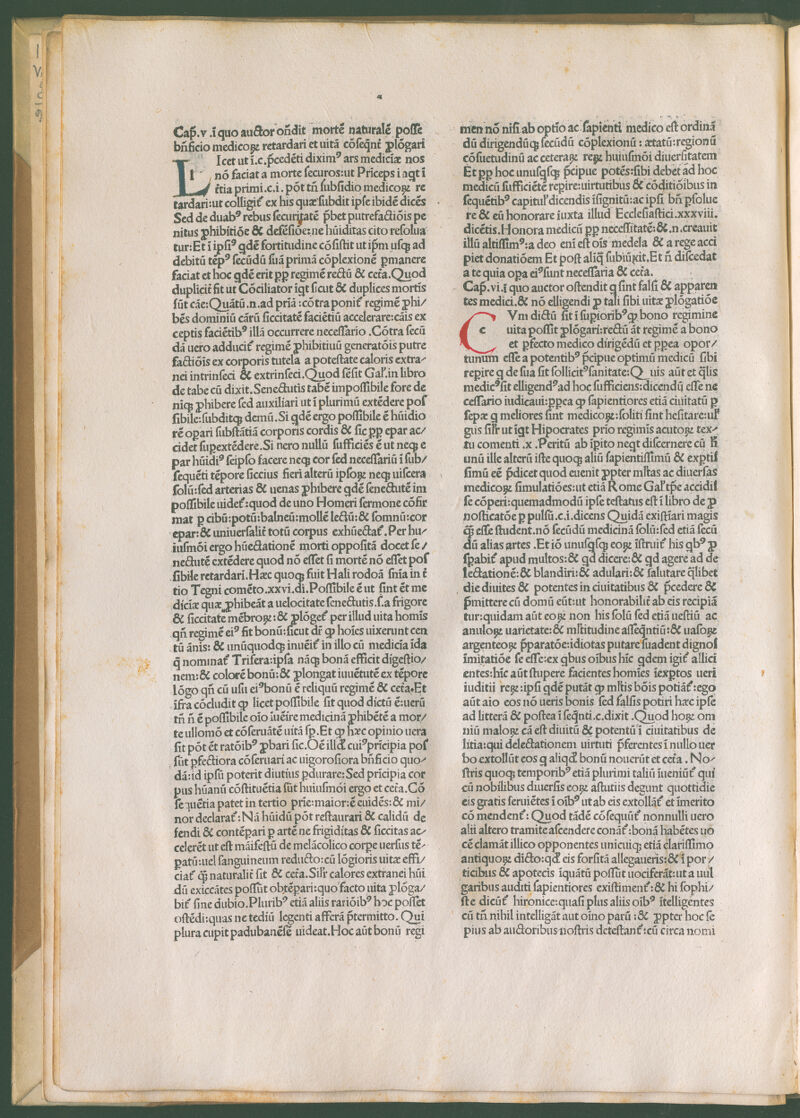 Cap̃.v .ī quo auctor oñdit mortē naturalē posse
bñficio medicoꝝ retardari et uitā cōseq̄nt̃ ꝓlōgari
LIcet ut ī.c.p̄cedēti diximꝰ ars mediciæ nos
l nō faciat a morte securos:ut Priceps iaqt ī
t̃tia primi.c.i. pōt tñ subsidio medicoꝝ re
tardari:ut colligit̃ ex his quæ subdit ipse ibidē dicēs
Sed de duabꝰ rebus securitatē p̄bet putrefactiōis pe
nitus ꝓhibitiōe & defēsiōe:ne hūiditas cito resolua
tur:Et ī ipsiꝰ qdē fortitudine cōsistit ut ip̄m usq̨ ad
debitū tēpꝰ secūdū suā primā cōplexionē ꝑmanere
faciat et hoc qdē erit ꝑꝑ regimē rectū & cet̃a.Quod
duplicit̃ fit ut Cōciliator iq̄t sicut & duplices mortis
sūt cāe:Quātū.n.ad priā :cōtra ponit̃ regimē phi/
bēs dominiū cārū siccitatē faciētiū accelerare:cāis ex
ceptis faciētibꝰ illā occurrere necessario .Cōtra secū
dā uero adducit̃ regimē ꝓhibitiuū generatōis putre
factiōis ex corporis tutela a potestate caloris extra/
nei intrinseci & extrinseci.Quod sēsit Gal̃.in libro
de tabe cū dixit.Senectutis tabē impossibile fore de
niq̨ phibere sed auxiliari ut ī plurimū extēdere pos
sibile:subditq̨ demū.Si qdē ergo possibile ē hūidio
rē opari substātiā corporis cordis & sic ꝑꝑ epar ac/
cidet supextēdere.Si uero nullū sufficiēs ē ut neq̨ e
par hūidiꝰ seipso facere neq̨ cor sed necessariū ī sub/
sequēti tēpore siccius fieri alterū ipsoꝝ neq̨ uiscera
solū:sed arterias & uenas ꝓhibere qdē senectutē im
possibile uidet̃:quod de uno Homeri sermone cōfir
mat p cibū:potū:balneū:mollē lectū:& somnū:cor
epar:& uniuersalit̃ totū corpus exhūectat̃.Per hu/
iusmōi ergo hūectationē morti oppositā docet se/
nectutē extēdere quod nō esset si mortē nō esset pos
sibile retardari.Hæc quoq̨ fuit Hali rodoā sn̄ia in t̃
tio Tegni comēto.xxvi.di.Possibile ē ut sint ēt me
diciæ quæ ꝓhibeāt a uelocitate senectutis.s.a frigore
& siccitate mēbroꝝ:& ꝓlōget̃ per illud uita homīs
qñ regimē eiꝰ fit bonū:sicut dr̃ ꝙ hoīes uixerunt cen
tū ānis: & unūquodq̨ inuēit̃ in illo cū medicīa īda
q̄ nominat̃ Trifera:ipsa nāq̨ bonā efficit digestio/
nem:& colorē bonū:& ꝓlongat iuuētutē ex tēpore
lōgo qñ cū usu eiꝰbonū ē reliquū regimē & cet̃a.Et
īfra cōcludit ꝙ licet possibile sit quod dictū ē:uerū
tñ ñ ē possibile oīo īuēire medicinā phibētē a mor/
te ullomō et cōseruātē uitā sp̄.Et ꝙ hæc opinio uera
sit pōt ēt ratōibꝰ ꝓbari sic.Oē illd̄ cuiꝰprīcipia pos
sūt pfectiora cōseruari ac uigorosiora bn̄ficio quo/
dā:id ipsū poterit diutius pdurare:Sed prīcipia cor
pus hūanū cōstituētia sūt huiusmōi ergo et cet̃a.Cō
sequētia patet in tertio prie:maior:ē euidēs:& mi/
nor declarat̃:Nā hūidū pōt restaurari & calidū de
fendi & contēpari p artē ne frigiditas & siccitas ac/
celerēt ut est māifestū de melācolico corpe uersus tē/
patū:uel sanguineum reducto:cū lōgioris uitæ effi/
ciat̃ q̄ naturalit̃ fit & cet̃a.Silr̃ calores extranei hūi
dū exiccātes possūt obtēpari:quo facto uita ꝓlōga/
bit̃ sine dubio.Pluribꝰ etiā aliis rariōibꝰ hoc posset
ostēdi:quas ne tediū legenti afferā p̄termitto. Qui
plura cupit padubanēsē uideat.Hoc aūt bonū regi
men nō nisi ab optīo ac sapienti medico est ordinā
dū dirigendūq̨ secūdū cōplexionū : ætatū:regionū
cōsuetudinū ac ceteraꝝ reꝝ huiusmōi diuersitatem
Et ꝑꝑ hoc unusq̄sq̨ p̄cipue potēs:sibi debet ad hoc
medicū sufficiētē repire:uirtutibus & cōditiōibus in
sequētibꝰ capitul'dicendis īsignitū:ac ipsi bñ psolue
re & eū honorare iuxta illud Ecclesiastici.xxxviii.
dicētis.Honora medicū ꝑꝑ necessitatē:&.n.creauit
illū altissimꝰ:a deo eni est oīs medela & a rege acci
piet donatiōem Et post aliq̄ subiūxit.Et ñ discedat
a te quia opa eiꝰsunt necessaria & cet̃a.
Cap̃.vi.ī quo auctor ostendit q̄ sint falsi & apparen
tes medici.& nō elligendi ꝓ tali sibi uitæ ꝓlōgatiōe
CVm dictū sit ī supioribꝰꝙ bono regimine
c uita possit ꝓlōgari:rectū āt regimē a bono
et pfecto medico dirigēdū et ppea opor/
tunum esse a potentibꝰ p̄cipue optimū medicū sibi
repire q̄ de sua sit sollicitꝰsanitate:Q uis aūt et q̄lis
medicꝰsit elligendꝰad hoc sufficiens:dicendū esse ne
cessario iudicaui:ppea ꝙ sapientiores etiā ciuitatū p
sepæ q̄ meliores sint medicoꝝ:soliti sint hesitare:ul̃
gus silr̃ ut iq̄t Hipocrates prio regimīs acutoꝝ tex/
tu comenti .x .Peritū ab īpito neqt discernere cū h̄
unū ille alterū iste quoq̨ aliū sapientissimū & exptis
simū eē p̄dicet quod euenit ꝓpter ml̄tas ac diuersas
medicoꝝ simulatiōes:ut etiā Rome Gal'tp̄e accidis
se cōperi:quemadmodū ipse testatus est ī libro de ꝓ
nosticatōe p pulsū.c.i.dicens Quidā existīari magis
q̄ esse student.nō secūdū medicinā solū:sed etiā secū
dū alias artes .Et iō unusq̄sq̨ eoꝝ īstruit̃ his qbꝰ ꝓ
spabit̃ apud multos:& qd dicere:& qd agere ad de
lectationē:& blandiri:& adulari:& salutare q̄libet
die diuites & potentes in ciuitatibus & p̄cedere &
p̄mittere cū domū eūt:ut honorabilit̃ ab eis recipiā
tur:quidam aūt eoꝝ non his solū sed etiā uestiū ac
anuloꝝ uarietate:& ml̄titudine asseq̄ntiū:& uasoꝝ
argenteoꝝ p̄paratōe:idiotas putare suadent dignos
īmitatiōe se esse:ex qbus oībus hīc qdem igit̃ allici
entes:hīc aūt stupere facientes homīes īexptos ueri
iuditii reꝝ:ipsi qdē putāt ꝙ ml̄tis bōis potiāt̃:ego
aūt aio eos nō ueris bonis sed falsis potiri hæc ipse
ad litterā & postea ī seq̄nti.c.dixit .Quod hoꝝ om
niū maloꝝ cā est diuitū & potentū ī ciuitatibus de
litia:qui delectationem uirtuti p̄ferentes ī nullo uer
bo extollūt eos q̄ aliqd̄ bonū nouerūt et cet̃a . No/
stris quoq̨ temporibꝰ etiā plurimi taliū īueniūt̃ qui
cū nobilibus diuersis eoꝝ astutiis degunt quottidie
eis gratis seruiētes ī oībꝰ ut ab eis extollāt̃ et īmerito
cō mendent̃: Quod tādē cōsequūt̃ nonnulli uero
alii altero tramite ascendere conāt̃:bonā habētes uo
cē clāmāt illico opponentes unicuiq̨ etiā clarissimo
antiquoꝝ dicto:qd̄ eis forsitā allegaueris:& ī por/
ticibus & apotecis iquātū possūt uociferāt:ut a uul
garibus auditi sapientiores existiment̃:& hi sophi/
ste dicūt̃ hironice:quasi plus aliis oībꝰ ītelligentes
cū tñ nihil intelligāt aut oīno parū :& ꝓpter hoc se
pius ab auctoribus nostris detestant̃:cū circa nomi